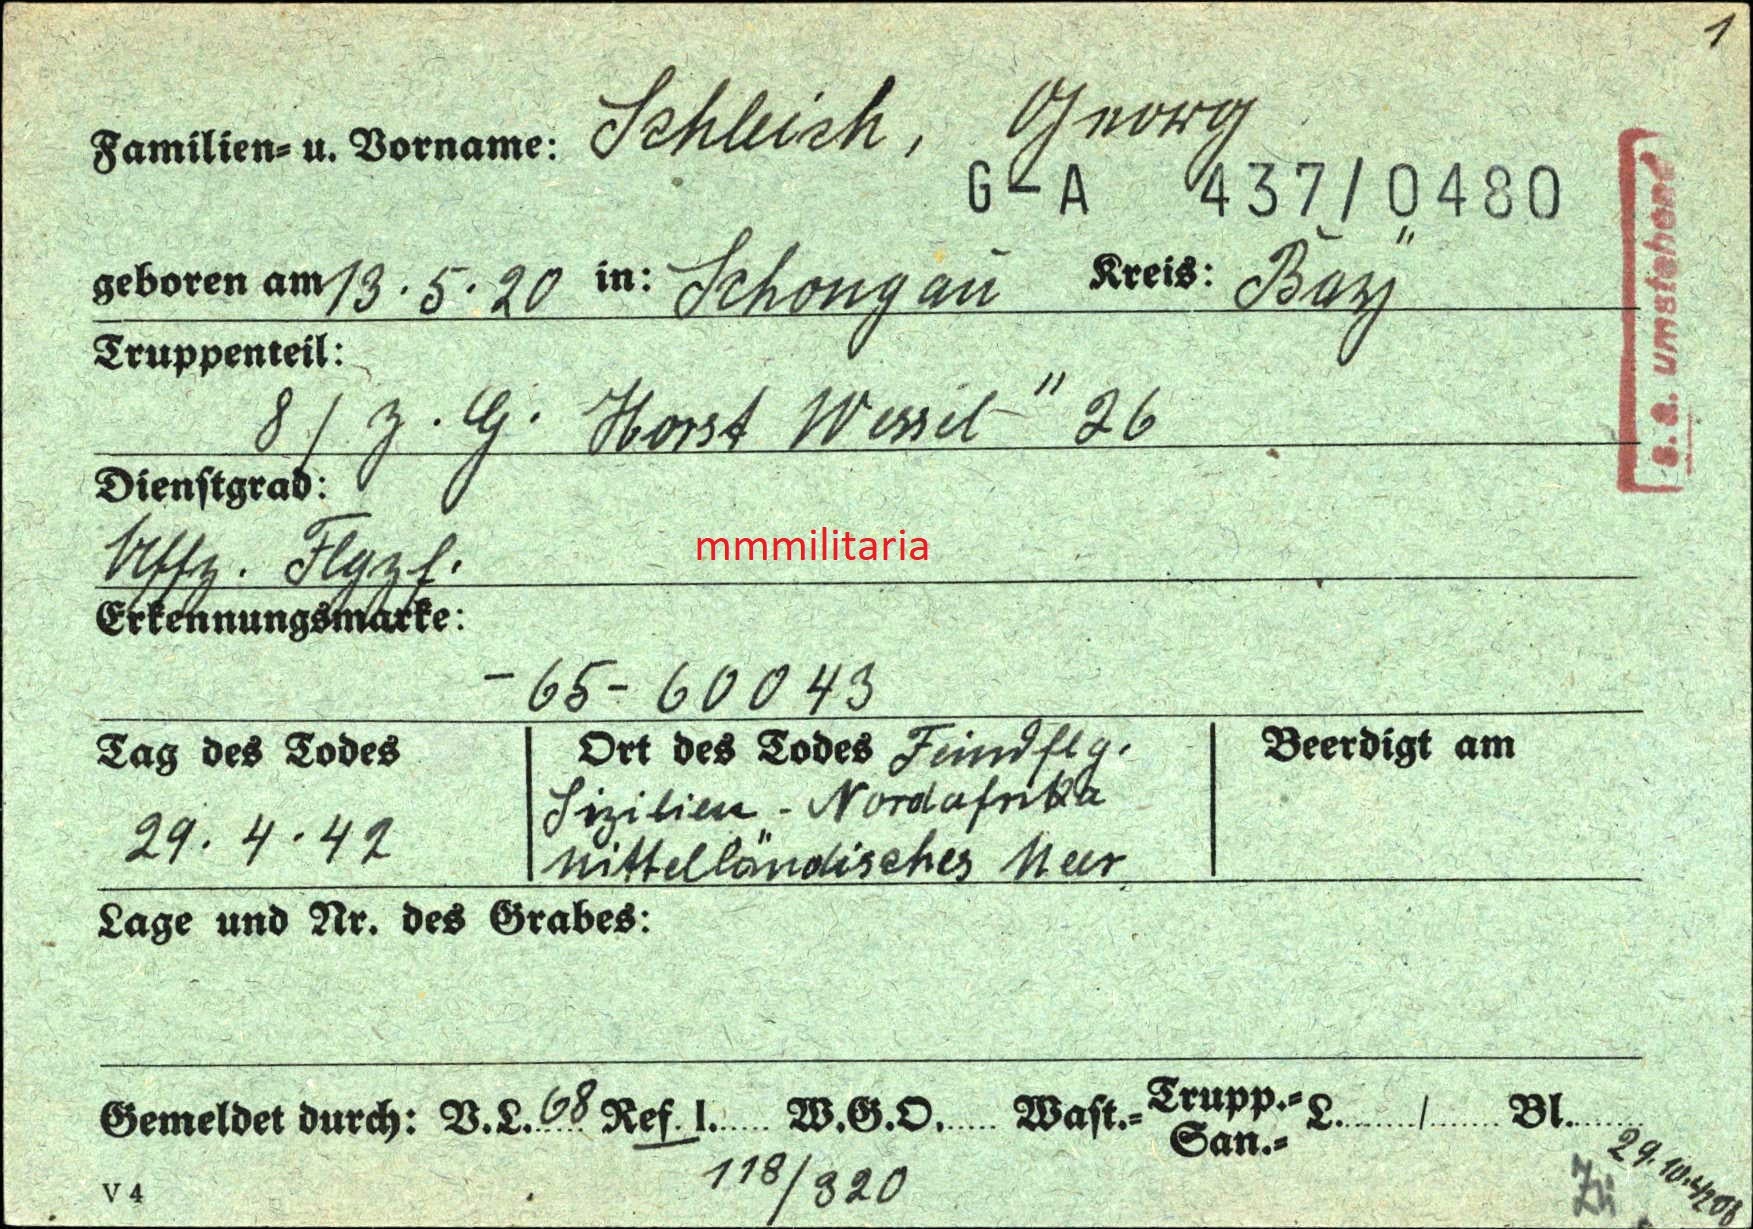 1
Familien- u. Vorname: Schleich, Georg
G-A 437/0480
geboren am 13.5.20 in: Schongau Kreis: Bay
s. a. umstehend
Truppenteil:
8/ Z. G. Horst Wessel" 26
Dienstgrad:
Uffz. Flgzf.
mmmilitaria
Erkennungsmarke:
-65- 60043
Tag des Todes
29.4.42
Ort des Todes Feindflg.
Sizilien - Nordafrika
Mittelländisches Meer
Beerdigt am
Lage und Nr. des Grabes:
Gemeldet durch: V.L. 68 Ref. I. W.G.O. Wast.- Trupp.- San.- L. / Bl.
118/320
V 4
29.10.42